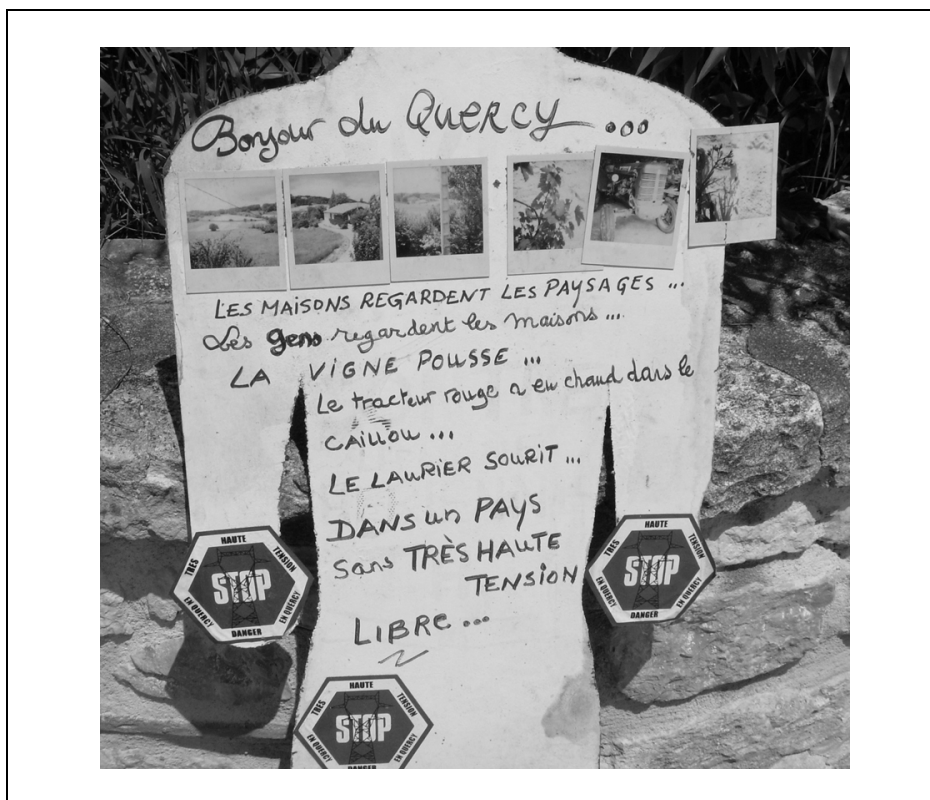 Bonjour du QUERCY ...
LES MAISONS REGARDENT LES PAYSAGES ...
Les gens regardent les maisons ...
LA VIGNE POUSSE ...
Le tracteur rouge a eu chaud dans le
CAILLOU ...
LE LAURIER SOURIT ...
DANS un PAYS
Sans TRÈS HAUTE
TENSION
LIBRE ...
TRES HAUTE TENSION
STOP
EN QUERCY DANGER EN QUERCY
TRES HAUTE TENSION
STOP
EN QUERCY DANGER EN QUERCY
TRES HAUTE TENSION
STOP
EN QUERCY DANGER EN QUERCY